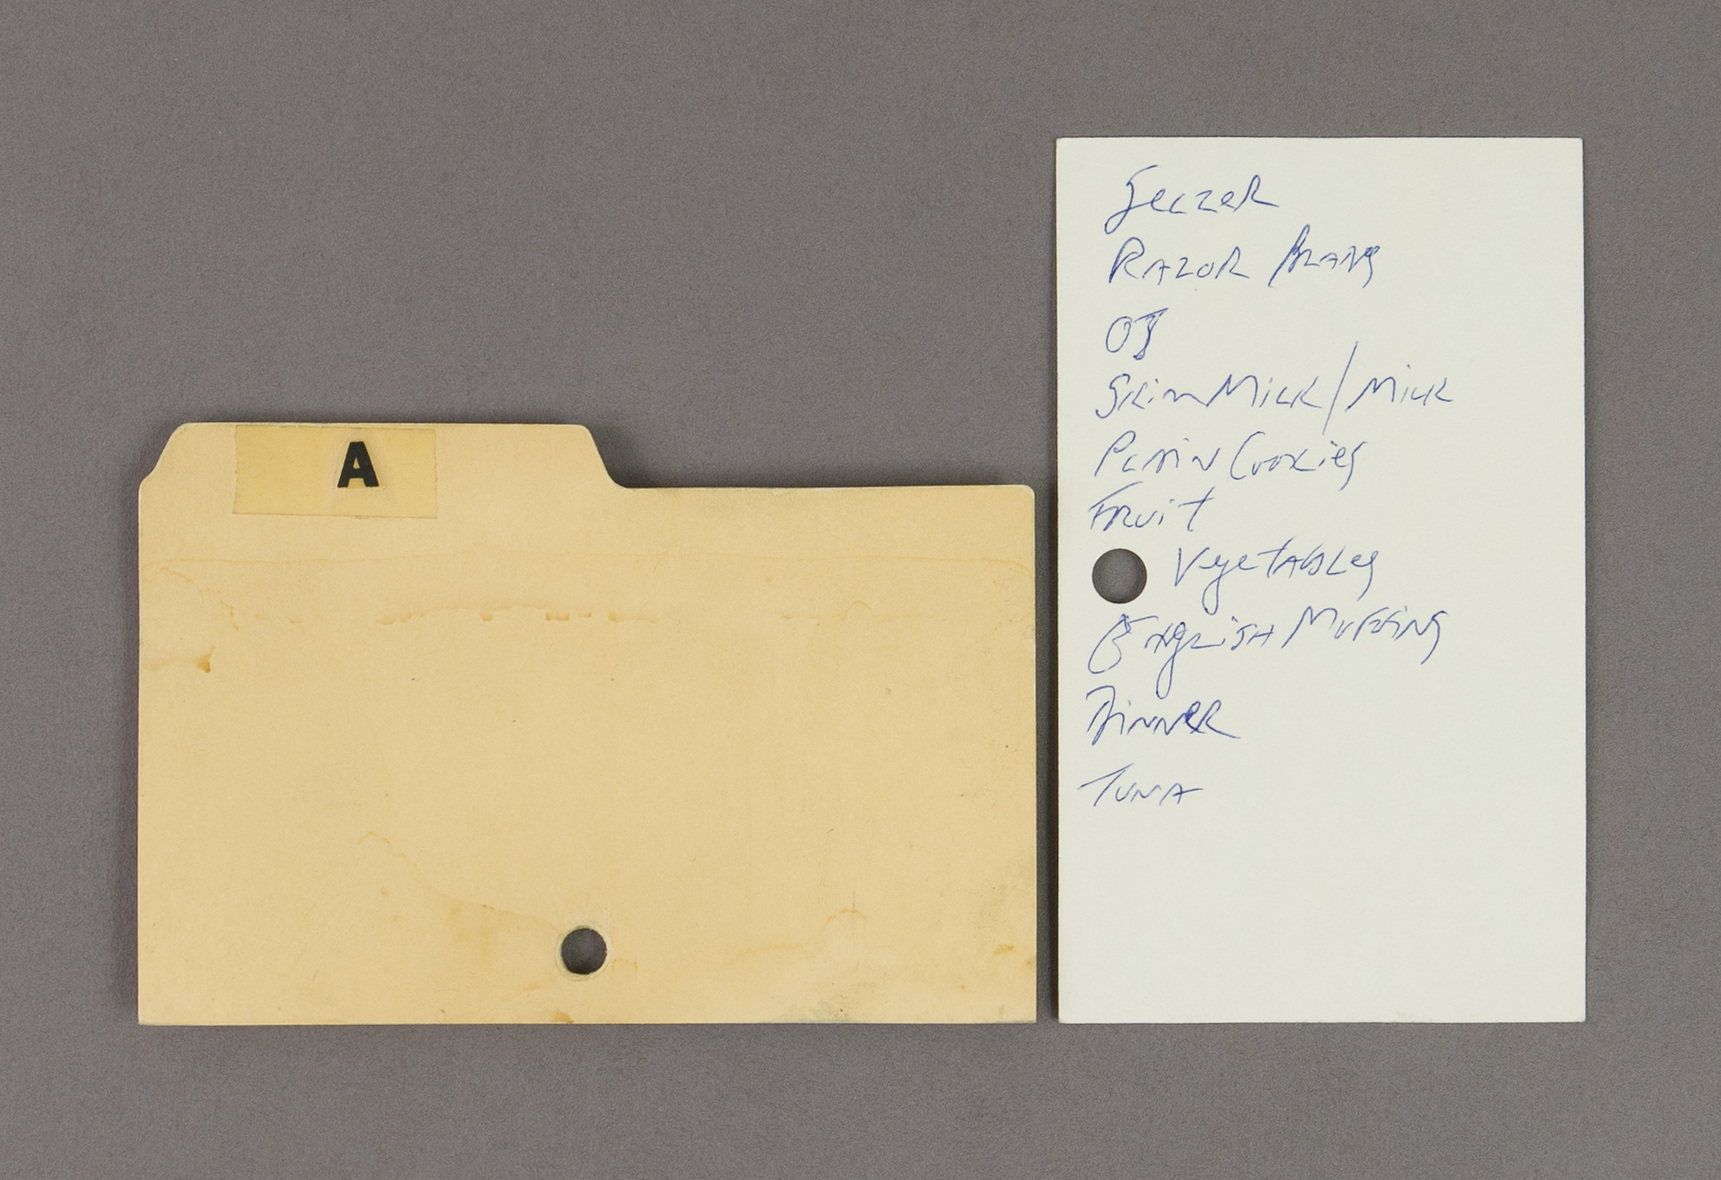 A
Selzer
Razor Blades
OJ
Skim Milk / Milk
Cookies
Fruit
Vegetables
English Muffins
Dinner
Tuna